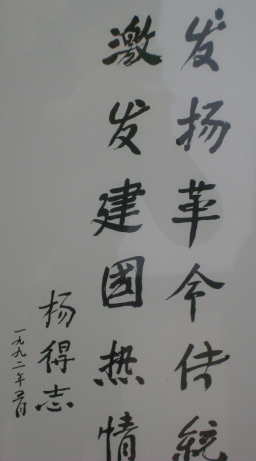 发扬革命传统
激发建国热情
杨得志
一九九二年五月